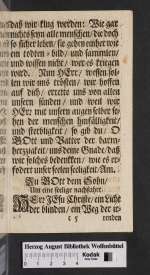 daß wir klug werden: Wie gar
nichts seyn alle menschen/ die doch
so sicher leben/ sie gehen daher wie
ein bild/ und sammlen/
und wissen nicht/ wer es kriegen
wird. Nun HErr/ wessen sol-
len wir uns trösten/ wir hoffen
auf dich/ errette uns von allen
unsern sünden/ und weil wir
HErr mit unsern augen selber se-
hen der menschen hinfälligkeit/
und sterbligkeit/ so gib du/ O
GOtt und Vatter der barm-
hertzigkeit/ uns deine Gnade/ daß
wir solches bedencken/ wie es er-
fodert unser seelen seeligkeit/ Am.
Zu GOtt dem Sohn/
Um eine seelige nachfahrt.
HErr JEsu Christe/ ein Licht
der blinden/ ein Weg der ir-
c 5 renden
Herzog August Bibliothek Wolfenbüttel